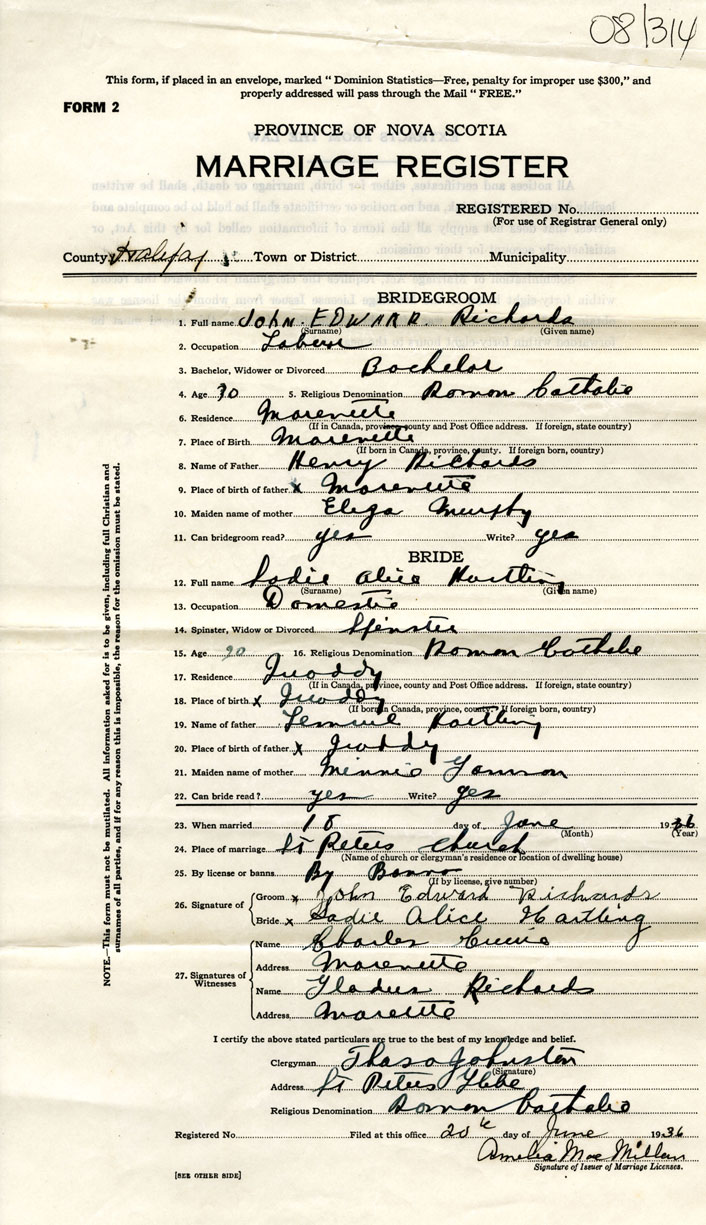 08/314
This form, if placed in an envelope, marked " Dominion Statistics—Free, penalty for improper use $300," and
properly addressed will pass through the Mail " FREE."
FORM 2
PROVINCE OF NOVA SCOTIA
MARRIAGE REGISTER
REGISTERED No.
(For use of Registrar General only)
County Halifax Town or District Municipality
BRIDEGROOM
1. Full name JOHN EDWARD Richards
(Surname) (Given name)
2. Occupation Laborer
3. Bachelor, Widower or Divorced Bachelor
4. Age 30 5. Religious Denomination Roman Catholic
6. Residence
(If in Canada, province, county and Post Office address. If foreign, state country)
7. Place of Birth
(If born in Canada, province, county. If foreign born, country)
8. Name of Father Henry Richards
9. Place of birth of father x
10. Maiden name of mother Eliza Murphy
11. Can bridegroom read? yes Write? yes
BRIDE
12. Full name Sadie Alice Hartling
(Surname) (Given name)
13. Occupation Domestic
14. Spinster, Widow or Divorced Spinster
15. Age 20 16. Religious Denomination Roman Catholic
17. Residence Quoddy
(If in Canada, province, county and Post Office address. If foreign, state country)
18. Place of birth x Quoddy
(If born in Canada, province, county. If foreign born, country)
19. Name of father Hartling
20. Place of birth of father x Quoddy
21. Maiden name of mother Minnie
22. Can bride read? yes Write? yes
23. When married 18 day of June 1936
(Month) (Year)
24. Place of marriage St Peters Church
(Name of church or clergyman's residence or location of dwelling house)
25. By license or banns By Banns
(If by license, give number)
26. Signature of
Groom x John Edward Richards
Bride x Sadie Alice Hartling
27. Signatures of Witnesses
Name Charles
Address
Name Richards
Address
I certify the above stated particulars are true to the best of my knowledge and belief.
Clergyman Johnston
(Signature)
Address St Peters Glebe
Religious Denomination Roman Catholic
Registered No. Filed at this office 20th day of June 1936
Amelia MacMillan
Signature of Issuer of Marriage Licenses.
[SEE OTHER SIDE]
NOTE.—This form must not be mutilated. All information asked for is to be given, including full Christian and
surnames of all parties, and if for any reason this is impossible, the reason for the omission must be stated.